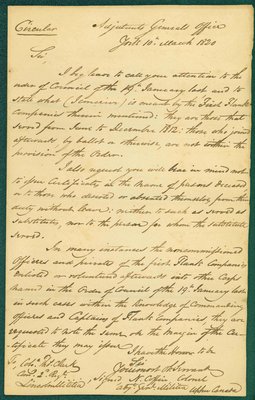 Circular
Adjutants General Office
York 10th March 1820
Sir,
I beg leave to call your attention to the
order of Council of the 19th January last and to
state what (Services) is meant by the First Flank
Companies therein mentioned; They are those that
served from June to December 1812: those who joined
afterwards by ballot or otherwise, are not within the
provision of the Order.
I also request you will bear in mind not
to issue Certificates in the Name of persons deceased
or to those who deserted or absented themselves from their
duty without leave: neither to such as served as
Substitutes, nor to the person for whom the substitute
served.
In many instances the noncommissioned
Officers and privates of the first Flank Companies
enlisted or volunteered afterwards into other Corps
named in the Order of Council of the 19th January last
in such cases within the Knowledge of Commanding
officers and Captains of Flank Companies, they are
requested to note the same on the Margin of the Cer-
tificate they may issue
I have the honor to be
Sir
Your most ob Servant
Signed, N. Coffin Colonel
Adjt Genl Militia Upper Canada
To, Col.
Comg 2d Regt
Lincoln Militia